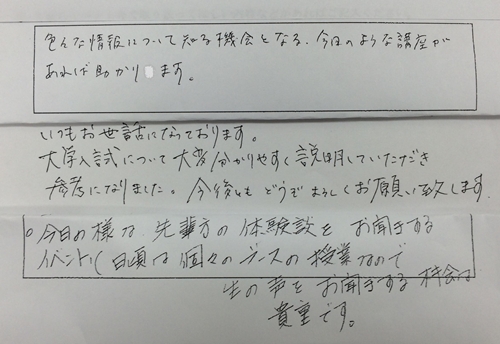 色んな情報について知る機会となる、今日のような講座が
あれば助かります。
いつもお世話になっております。
大学入試について大変分かりやすく説明していただき
参考になりました。今後ともどうぞよろしくお願い致します
。今日の様な、先輩方の体験談をお聞きする
イベント(日頃は個々のブースの授業なので
生の声をお聞きする機会は
貴重です。